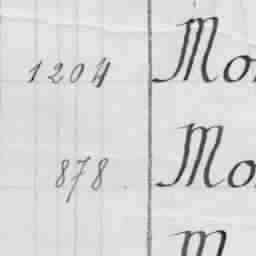 1204 Mo
878 Mo
M